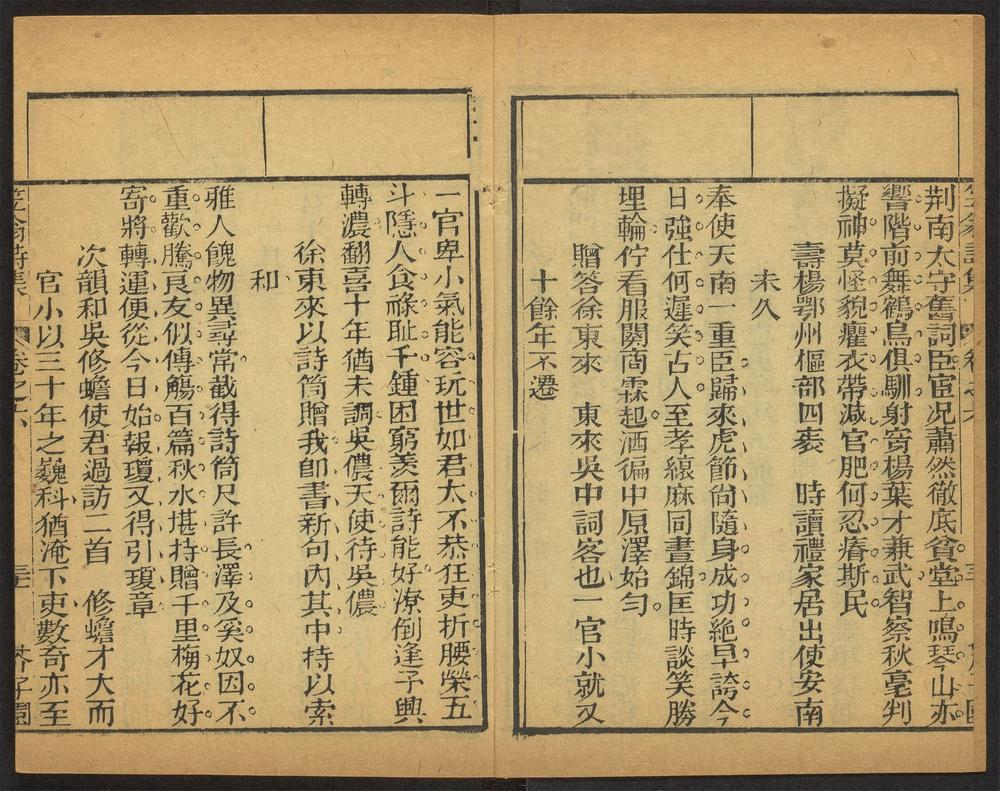 荆南太守舊詞臣宦况蕭然徹底貧堂上鳴琴山亦
響階前舞鶴鳥俱馴射穿楊葉才兼武智察秋毫判
擬神莫怪貌癯衣帶減官肥何忍瘠斯民
壽楊鄂州樞部四袠　時讀禮家居出使安南
未久
奉使天南一重臣歸來虎節尙隨身成功絶早誇今
日強仕何遲笑古人至孝縗麻同晝錦匡時談笑勝
埋輪佇看服闋商霖起洒徧中原澤始勻
贈答徐東來　東來吳中詞客也一官小就又
十餘年不遷
一官卑小氣能容玩世如君太不恭狂吏折腰榮五
斗隱人食祿耻千鍾困窮羡爾詩能好潦倒逢予興
轉濃翻喜十年猶未調吳儂天使待吳儂
徐東來以詩筒贈我卽書新句內其中持以索
和
雅人餽物異尋常截得詩筒尺許長澤及奚奴因不
重歡騰良友似傳觴百篇秋水堪持贈千里梅花好
寄將轉運便從今日始報瓊又得引瓊章
次韻和吳修蟾使君過訪二首　修蟾才大而
官小以三十年之巍科猶淹下吏數奇亦至
笠翁詩集　卷之六　芥子園